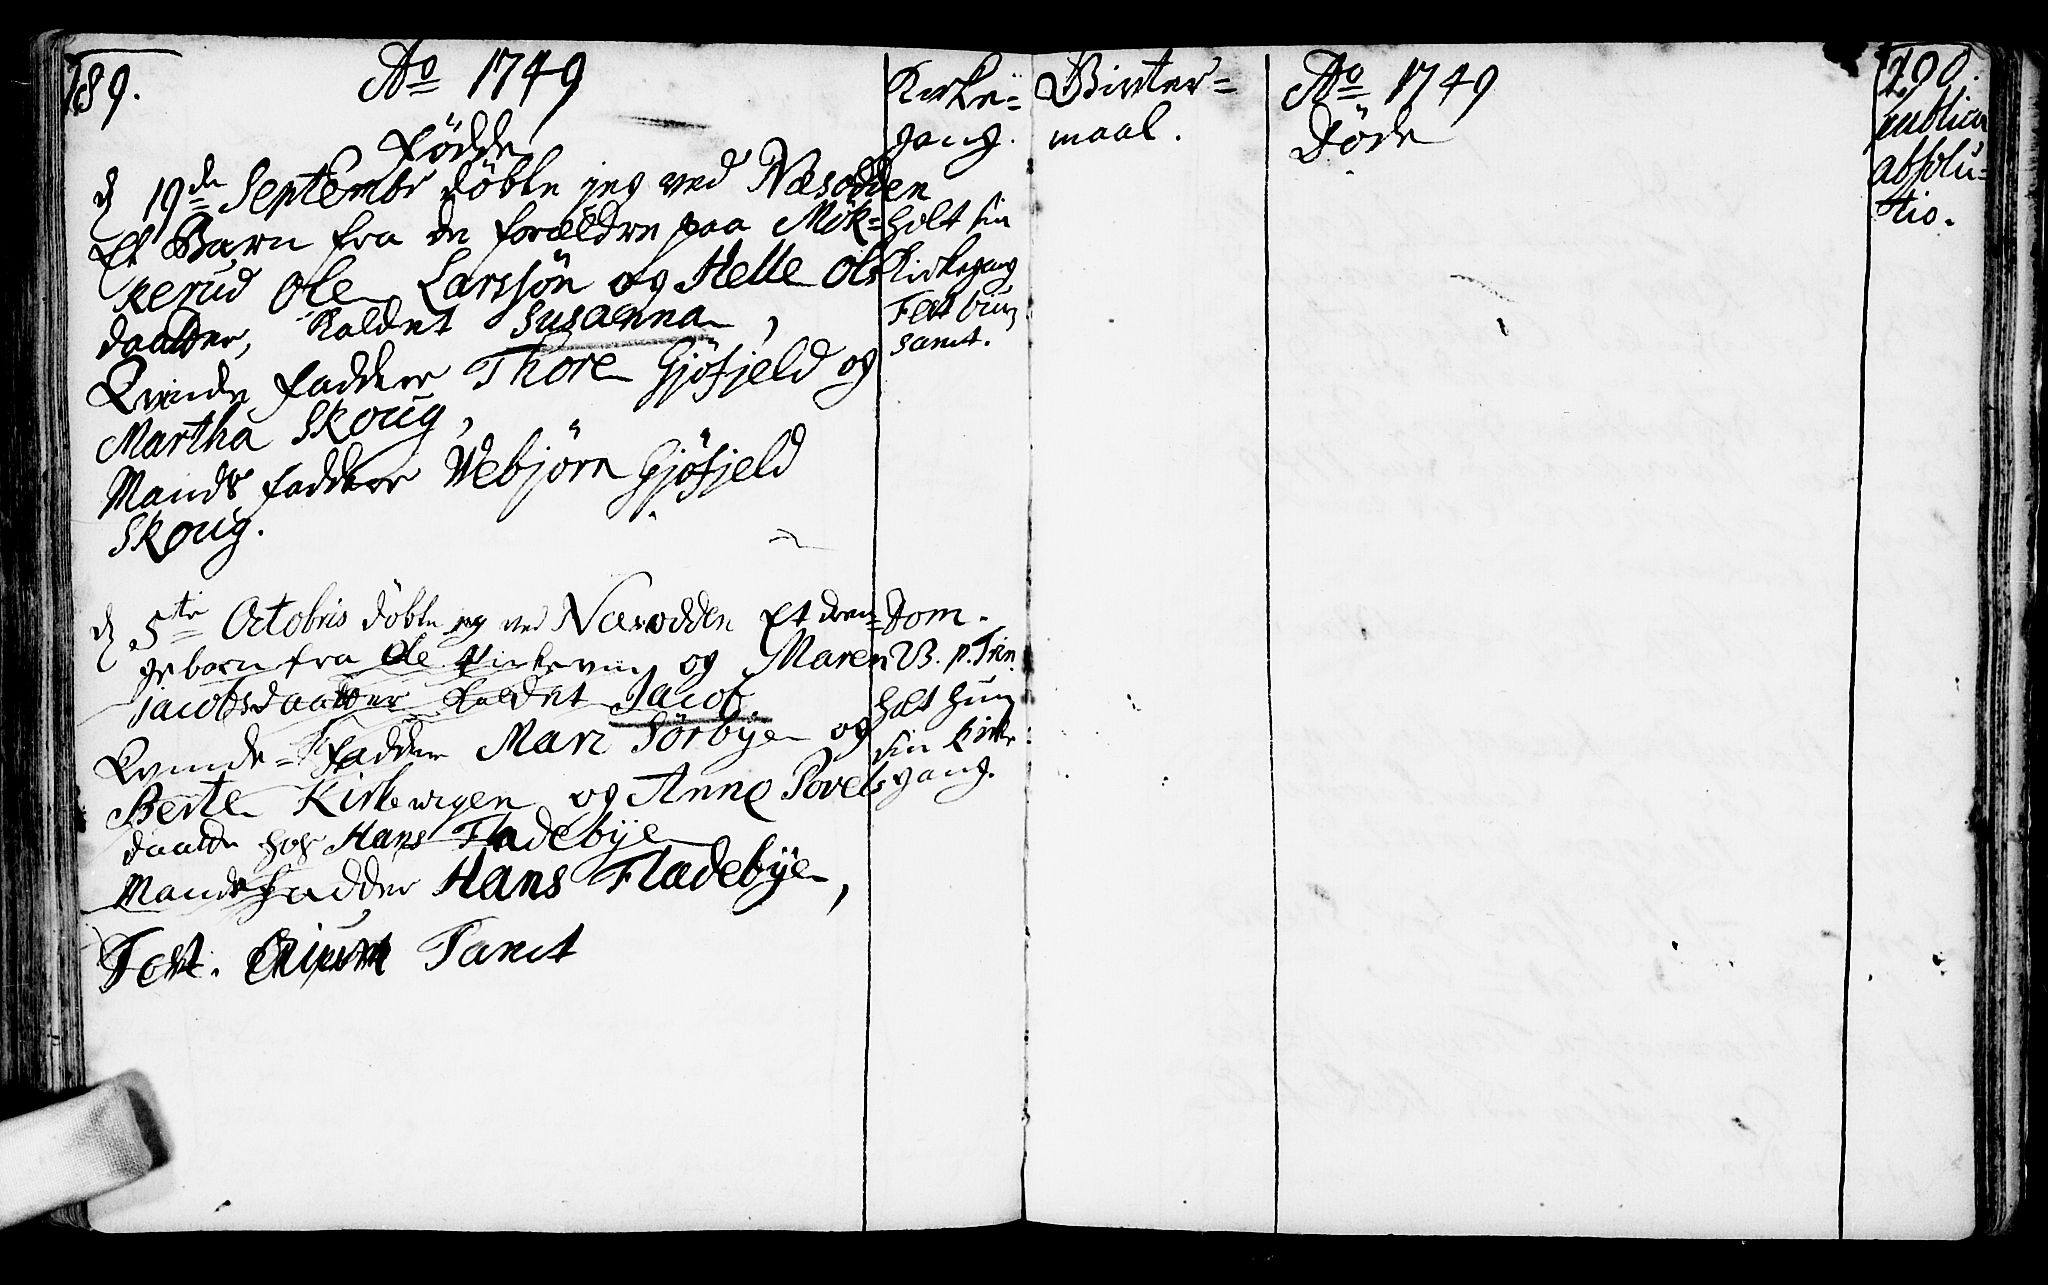 189.
Ao 1749
Fødde
d 19de Septembr døbte jeg ved Næsodden
Et Barn fra de forældre paa Møk-
kerud Ole Larssøn og Helle Ols
daatter, kaldet Susanna,
Qvinde faddere Thore Gjøfjeld og
Martha Skoug,
Mands faddere Webjørn Gjøfjeld
Skoug.
d 5te Octobris døbte jeg ved Næsodden Et dren-
gebarn fra Ole Kirkevig og Maren
Jacobsdaatter kaldet Jacob.
Qvinde-Fadder Mari Sørbye og
Berte Kirkewigen og Anne Povels
daatter hos Hans Fladebye
Mands Fadder Hans Fladebye,
Fest. Sanct
Kirke-
gang.
Holt sin
Kirkegang
Fest
Sanct.
Dom.
23. p. Trin.
Holt hun
sin Kirke
gang.
Vinter-
maal.
Ao 1749
Døde
190.
publica
absolu-
tio.